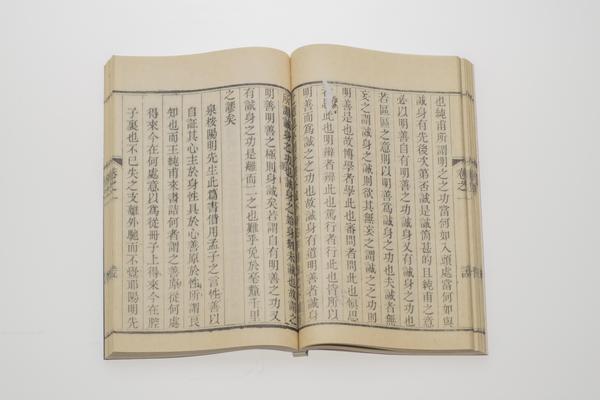 也純甫所謂明之之功當何如入頭處當何如與
誠身有先後次第否誠是誠箇甚的且純甫之意
必以明善自有明善之功誠身又有誠身之功也
若區區之意則以明善爲誠身之功也夫誠者無
妄之謂誠身之誠則欲其無妄之謂誠之之功則
明善是也故博學者學此也審問者問此也慎思
者思此也明辯者辯此也篤行者行此也皆所以
明善而爲誠之之功也故誠身有道明善者誠身
所謂誠身之功也誠身之始身猶未誠也故謂之
明善明善之極則身誠矣若謂自有明善之功又
有誠身之功是離而二之也難乎免於毫釐千里
之謬矣
泉按陽明先生此爲書借用孟子之言性善以
自証其心主於身性具於心善原於性所謂良
知也而王純甫來書詰何者謂之善原從何處
得來今在何處意以爲從冊子上得來今在腔
子裏也不已失之支離外馳而不覺耶陽明先